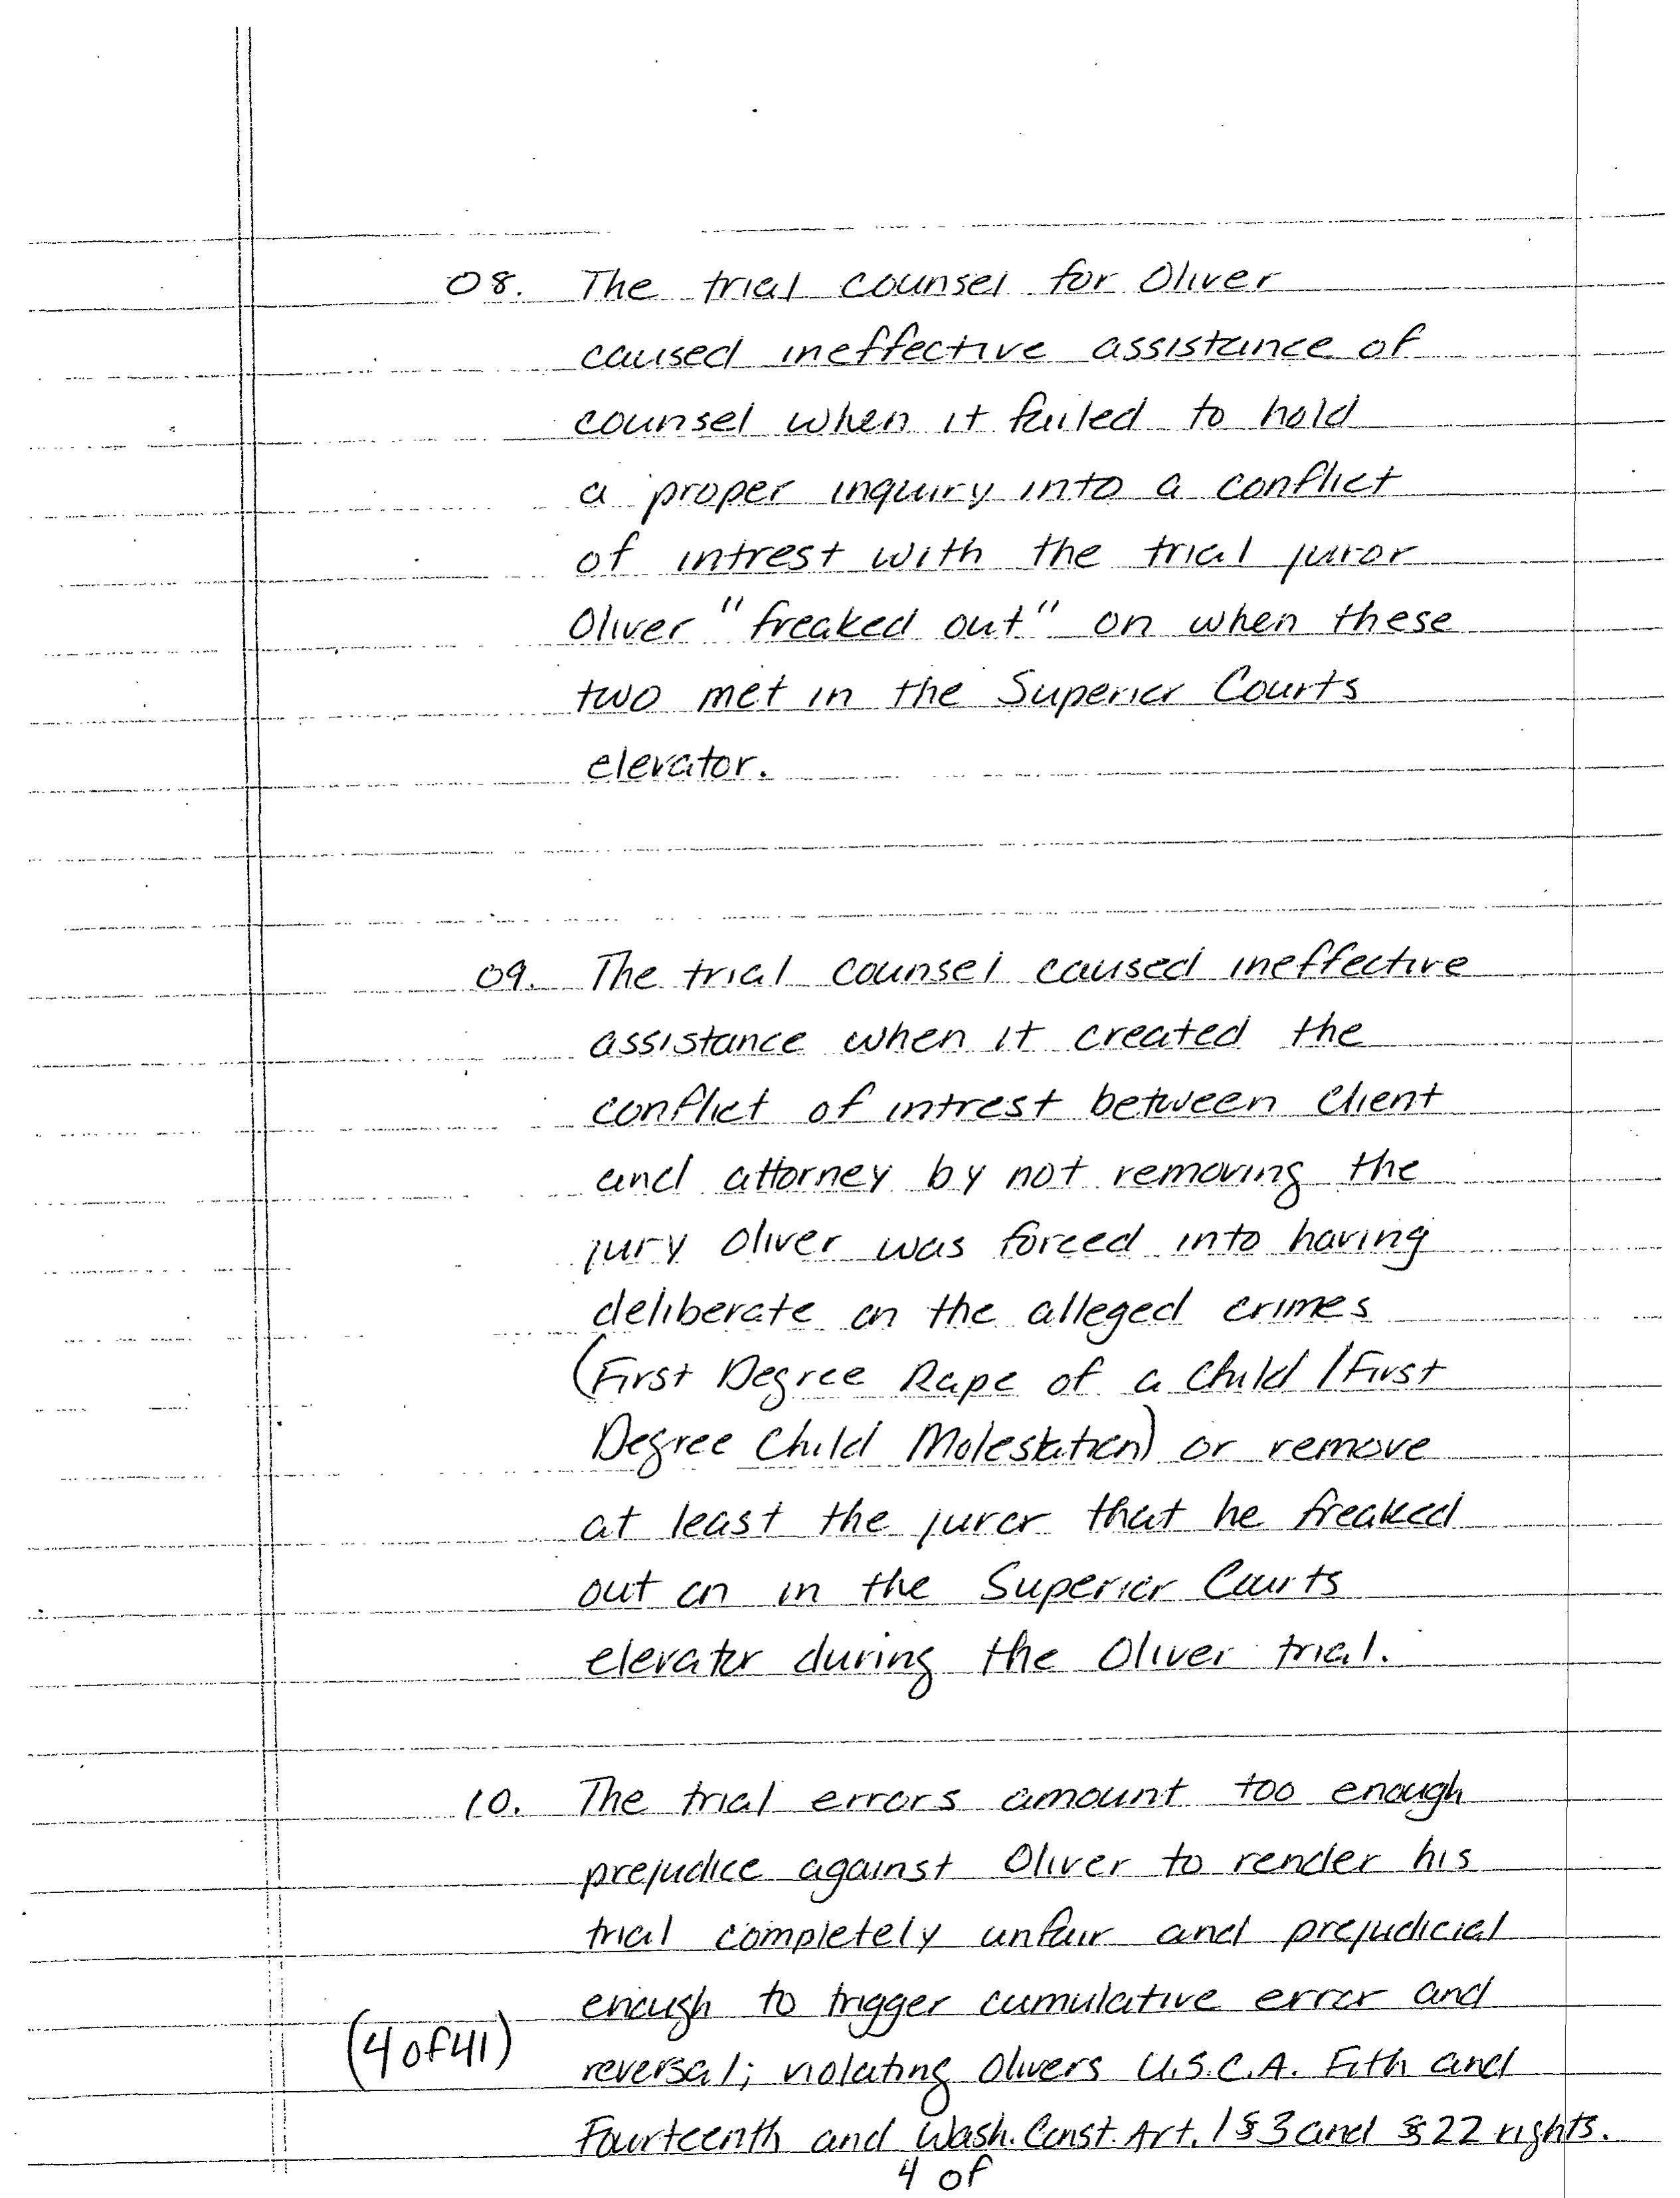 08. The trial counsel for Oliver
caused ineffective assistance of
counsel when it failed to hold
a proper inquiry into a conflict
of intrest with the trial juror
Oliver "freaked out" on when these
two met in the Superior Courts
elevator.
09. The trial counsel caused ineffective
assistance when it created the
conflict of intrest between client
and attorney by not removing the
jury Oliver was forced into having
deliberate on the alleged crimes
(First Degree Rape of a Child / First
Degree Child Molestation) or remove
at least the juror that he freaked
out on in the Superior Courts
elevator during the Oliver trial.
10. The trial errors amount too enough
prejudice against Oliver to render his
trial completely unfair and prejudicial
enough to trigger cumulative error and
(4 of 41)
reversal; violating Olivers U.S.C.A. Fith and
Fourteenth and Wash. Const. Art. 1 § 3 and § 22 rights.
4 of